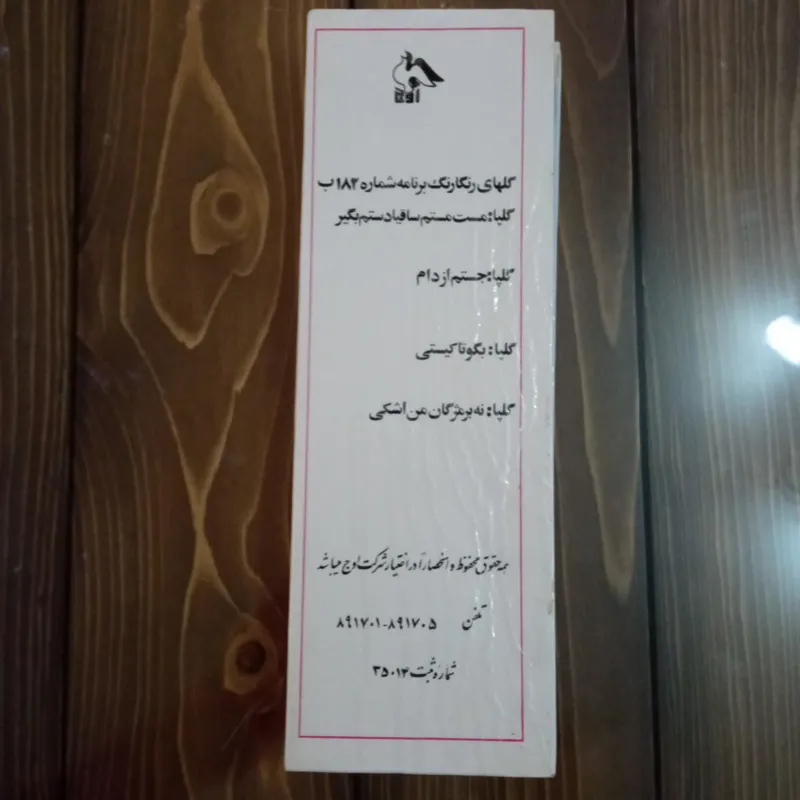 اوج
گلهای رنگارنگ برنامه شماره ۱۸۲ ب
گلپا: مست مستم ساقیا دستم بگیر
گلپا: جستم از دام
گلپا: بگو تا کیستی
گلپا: نه بر مژگان من اشکی
همه حقوق محفوظ و انحصاراً در اختیار شرکت اوج میباشد
تلفن ۸۹۱۷۰۵-۸۹۱۷۰۱
شماره ثبت ۳۵۰۱۴